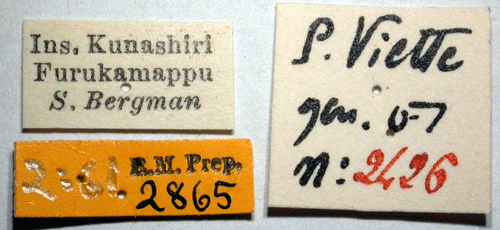 Ins. Kunashiri
Furukamappu
S. Bergman
R.M. Prep.
2865
P. Viette
gen.
n: 2426